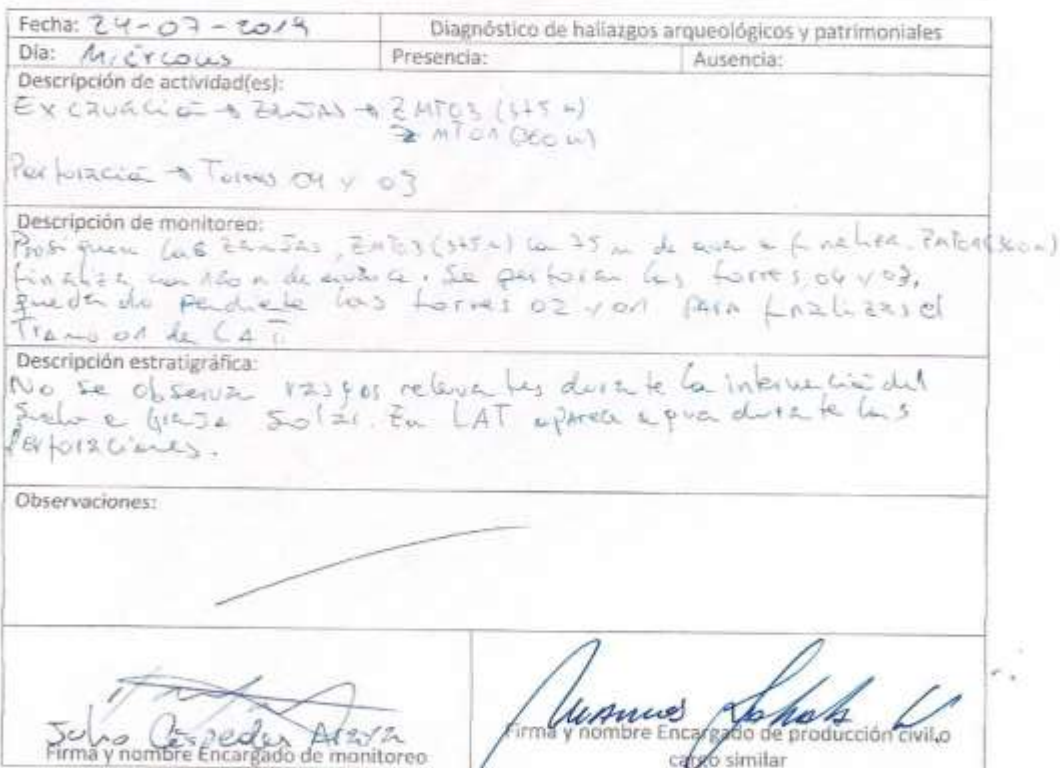 Fecha: 24-07-2019 Diagnóstico de hallazgos arqueológicos y patrimoniales
Día: Miércoles Presencia: Ausencia:
Descripción de actividad(es):
Excavación → Zanjas → ZMT03 (375 m)
ZMT01 (360 m)
Perforación → Torres 04 y 03
Descripción de monitoreo:
Prosiguen las zanjas, ZMT03 (375 m) con 75 m de avance finaliza. ZMT01 (360 m)
finaliza con de avance. Se perforan las torres 04 y 03,
quedando pendiente las torres 02 y 01 para finalizar el
Tramo 01 de LAT
Descripción estratigráfica:
No se observan rasgos relevantes durante la intervención del
suelo e Granja Solar. En LAT aparece agua durante las
perforaciones.
Observaciones:
Julio Céspedes Araya
Firma y nombre Encargado de monitoreo
Firma y nombre Encargado de producción civil o
cargo similar